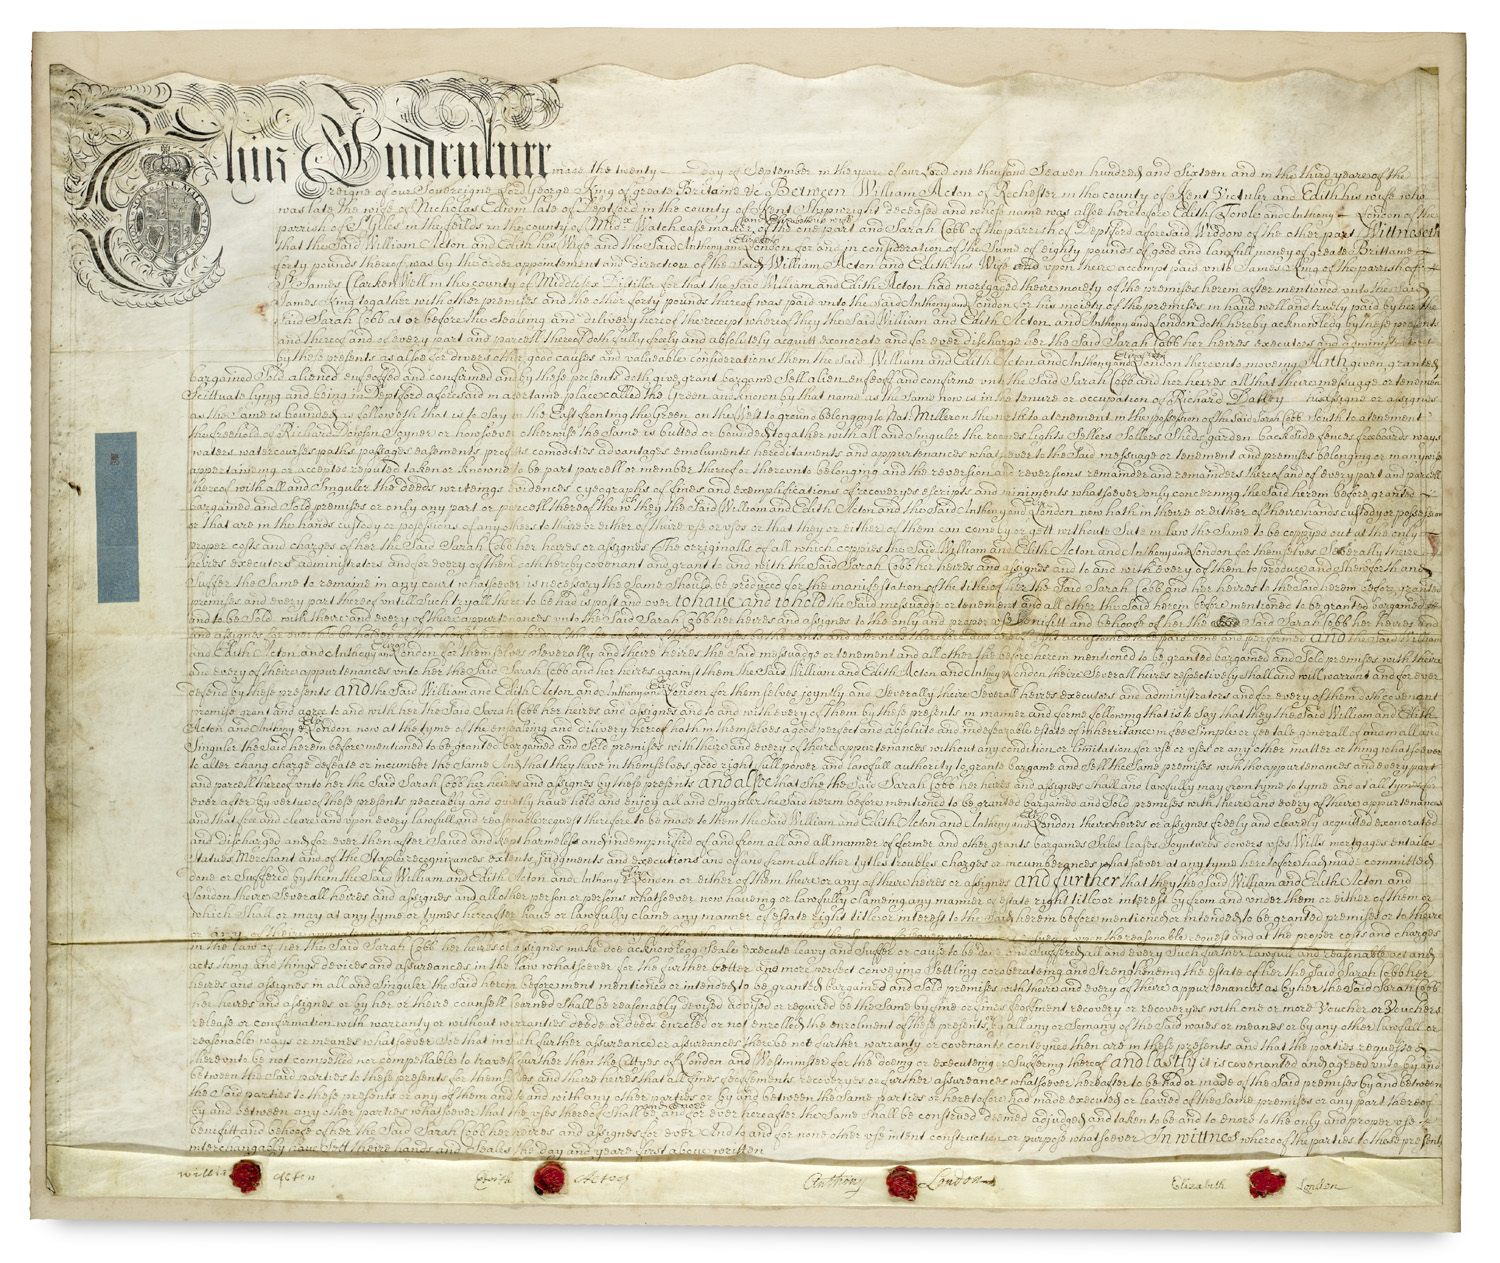 This Indenture made the twenty day of September in the yeare of our Lord one thousand Seaven hundred and Sixteen and in the third yeare of the
reigne of our Sovereigne Lord George King of great Britaine &c Between William Acton of Rochester in the county of Kent Victuler and Edith his wife who
was late the wife of Nicholas Edwin late of Deptford in the county of Kent Shipwright deceased and whose name was alsoe heretofore Edith Fowle and Anthony London of the
parrish of St Gyles in the feilds in the county of Midx Watch case maker and Elizabeth his wife of the one part and Sarah Cobb of the parrish of Deptford aforesaid Widdow of the other part Wittnaseth
that the Said William Acton and Edith his Wife and the Said Anthony and Elizabeth London for and in consideration of the Sume of eighty pounds of good and lawfull money of greate Brittane
forty pounds thereof was by the order appointement and direction of the Said William Acton and Edith his Wife and upon there accompt paid vnto James King of the parrish of
St James Clarken Well in the county of Middlesex Distiller for that the Said William and Edith Acton had mortgaged there moiety of the premises herein after mentioned vnto the Said
James King together with other premises and the other forty pounds thereof was paid vnto the Said Anthony and London for his moiety of the premises in hand well and truely paid by her the
Said Sarah Cobb at or before the ensealing and dilivery hereof the receipt whereof they the Said William and Edith Acton and Anthony and London doth hereby acknowledg by these presents
and thereof and of every part and parcell thereof doth fully freely and absolutely acquitt exonorate and for ever discharge her the Said Sarah Cobb her heires executors and administrators
by these presents as alsoe for divers other good causes and valueable considerations them the Said William and Edith Acton and Anthony and Elizabeth London therevnto moveing Hath given granted
bargained Sold aliened enfeoffed and confirmed and by these presents doth give grant bargaine Sell alien enfeoff and confirme vnto the Said Sarah Cobb and her heires all that there messuage or tenement
Scittuate lying and being in Deptford aforesaid in a certaine place called the Green and known by that name as the Same now is in the tenure or occupation of Richard Dalley his assigne or assignes
as the Same is bounded as followeth that is to Say on the East fronting the Green on the West to ground belonging to Nat. Miller on the north to a tenement in the possession of the Said Sarah Cobb South to a tenement
the freehold of Richard Dowson Joyner or howsoever otherwise the Same is butted or bounded together with all and Singuler the roomes lights Sellers Sollers Sheds garden backside fences freboards ways
waters watercourses paths passages easements profits comodities advantages emoluments hereditaments and appurtenances whatsoever to the Said messuage or tenement and premises belonging or in any wise
appertaineing or accepted reputed taken or knowne to be part parcell or member thereof or therevnto belonging and the reversion and reversions remainder and remainders thereof and of every part and parcell
thereof with all and Singuler the deeds writeings evidences cyrographs of fines and exemplifications of recoveryes escripts and miniments whatsoever only concerning the Said herein before granted
bargained and Sold premises or only any part or parcell thereof the which they the Said William and Edith Acton and the Said Anthony and London now hath in theire or either of theire hands custody or possession
or that are in the hands custody or posessions of any others to theire or either of theire vse or vses or that they or either of them can come by or gett without Sute in law the Same to be coppyed out as the only
proper costs and charges of her the Said Sarah Cobb her heires or assignes the originalls of all which coppies the Said William and Edith Acton and Anthony and London for themselves Severally theire
heires executors administrators and for every of them doth hereby covenant and grant to and with the Said Sarah Cobb her heires and assignes and to and with every of them to produce and sheworth and
Suffer the Same to remaine in any court whatsoever is necessary the Same Should be produced for the manifestation of the title of her the Said Sarah Cobb and her heires to the Said herein before granted
premises and every part thereof untill Such tryall there to be had is past and over to have and to hold the Said messuadge or tenement and all other the Said herein before mentioned to be granted bargained
and to be Sold with there and every of theire appurtenances vnto the Said Sarah Cobb her heires and assignes to the only and proper vse benifitt and behoofe of her the Said Sarah Cobb her heires and
and assignes for ever and performed And the Said William
and Edith Acton and Anthony and London for themselves Severally and theire heires the Said messuadge or tenement and all other the before herein mentioned to be granted bargained and Sold premises with theire
and every of theire appurtenances vnto her the Said Sarah Cobb and her heires against them the Said William and Edith Acton and Anthony London theire Severall heires respectively Shall and will warrant and for ever
defend by these presents and the Said William and Edith Acton and Anthony and London for themselves joyntly and Severally theire Severall heires executors and administrators and for every of them doth covenant
promise grant and agree to and with her the Said Sarah Cobb her heires and assignes and to and with every of them by these presents in manner and forme following that is to Say that they the Said William and Edith
Acton and Anthony & London now at the tyme of the ensealing and dilivery hereof hath in themselves a good perfect and absolute and indefeasable estate of inherritance in fee Simple or fee taile generall of and in all and
Singuler the Said herein before mentioned to be granted bargained and Sold premises with theire and every of theire appurtenances without any condition or limitation for vse or vses or any other matter or thing whatsoever
to alter chang charge defeate or incumber the Same And that they have in themselves good right full power and lawfull authority to grante bargaine and Sell the Same premises with the appurtenances and every part
and parcell thereof vnto her the Said Sarah Cobb her heires and assignes by these presents and alsoe that She the Said Sarah Cobb her heires and assignes Shall and lawfully may from tyme to tyme and at all tymes for
ever after by vertue of these presents peaceably and quietly have hold and enjoy all and Singuler the Said herein before mentioned to be granted bargained and Sold premises with theire and every of theire appurtenances
and that free and cleare and vpon every lawfull and reasonable request therefore to be made to them the Said William and Edith Acton and Anthony and London there heires or assignes freely and clearely acquitted exonorated
and discharged and for ever then after Saved and kept harmeless and indempnified of and from all and all manner of former and other grants bargaines Sales leases Joyntures dowers vses Wills mortgages entailes
Statutes Merchant and of the Staple recognizances extents judgments and executions and of and from all other tytles troubles charges or incumberances whatsoever at any tyme heretofore had made committed
done or Suffered by them the Said William and Edith Acton and Anthony London or either of them there or any of theire heires or assignes and further that they the Said William and Edith Acton and
London theire Severall heires and assignes and all other person or persons whatsoever now haveing or lawfully claimeing any manner of estate right title or interest by from and vnder them or either of them or
which Shall or may at any tyme or tymes hereafter have or lawfully clame any manner of estate right title or interest to the Said herein before mentioned or intended to be granted premises or to theire
or any of theire upon the reasonable request and at the proper costs and charges
in the law of her the Said Sarah Cobb her heires or assignes make doe acknowledg Seale execute leavy and Suffer or cause to be done and Suffered all and every Such further lawfull and reasonable act and
acts thing and things devices and assureances in the law whatsoever for the further better and more perfect conveying Settling coroberateing and Strengthening the estate of her the Said Sarah Cobb her
heires and assignes in all and Singuler the Said herein before ment mentioned or intended to be granted bargained and Sold premises with theire and every of theire appurtenances as by her the Said Sarah Cobb
her heires and assignes or by her or theire counsell learned Shall be reasonably devised advised or required be the Same by fine or fines feoffment recovery or recoveryes with one or more Voucher or Vouchers
release or confirmation with warranty or without warranties deede or deeds enroled or not enrolled the enrolment of these presents by all any or So many of the Said waies or meanes or by any other lawfull or
reasonable ways or meanes whatsoever Soe that in Such further assureance or assureances there be not further warranty or covenants conteyned then are in these presents and that the parties requested
therevnto be not compelled nor compellable to travell further then the Cittyes of London and Westminster for the doeing or executeing or Suffering thereof and lastly it is covenanted and agreed vnto by and
between the Said parties to these presents for themselves and theire heires that all fines feoffements recoveryes or further assureances whatsoever hereafter to be had or made of the Said premises by and between
the Said parties to these presents or any of them and to and with any other parties or by and between the Same parties or heretofore had made executed or leavied of the Same premises or any part thereof
by and between any other parties whatsoever that the vses thereof Shall be and for ever hereafter the Same shall be construed deemed adjudged and taken to be and to enure to the only and proper vse
benefitt and behoofe of her the Said Sarah Cobb her heires and assignes for ever And to and for none other vse intent construction or purpose whatsoever In wittness whereof the parties to these presents
interchangably have Sett there hands and Seales the day and yeare first above written
William Acton Edith Acton Anthony London Elizabeth London